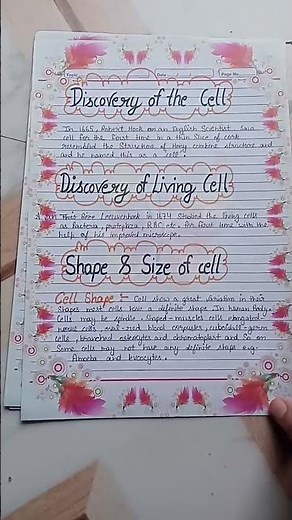 Date
Page No.
Discovery of the Cell
In 1665, Robert Hook an an English Scientist Saw
cell for the First time in a thin Slice of cork
resembled the Structure of Hony combine structure and
and he named this as a "cell".
Discovery of Living Cell
Leeuwenhoek in 1674 Studied the living cells
as Bacteria, protozoa, RBC etc. for First time with the
help of his improved microscope.
Shape & Size of cell
Cell Shape :- Cell show a great variation in their
Shapes most cells have a definite Shape. In human Body.
Cells may be spindle shaped - muscles cells elongated -
nerve cells oval - red blood corpuscles, cuboidal - germ
cells, branched osteocytes and chromatoplast and So on
Some cells may not have any definite shape e.g.
Amoeba and leucocytes.